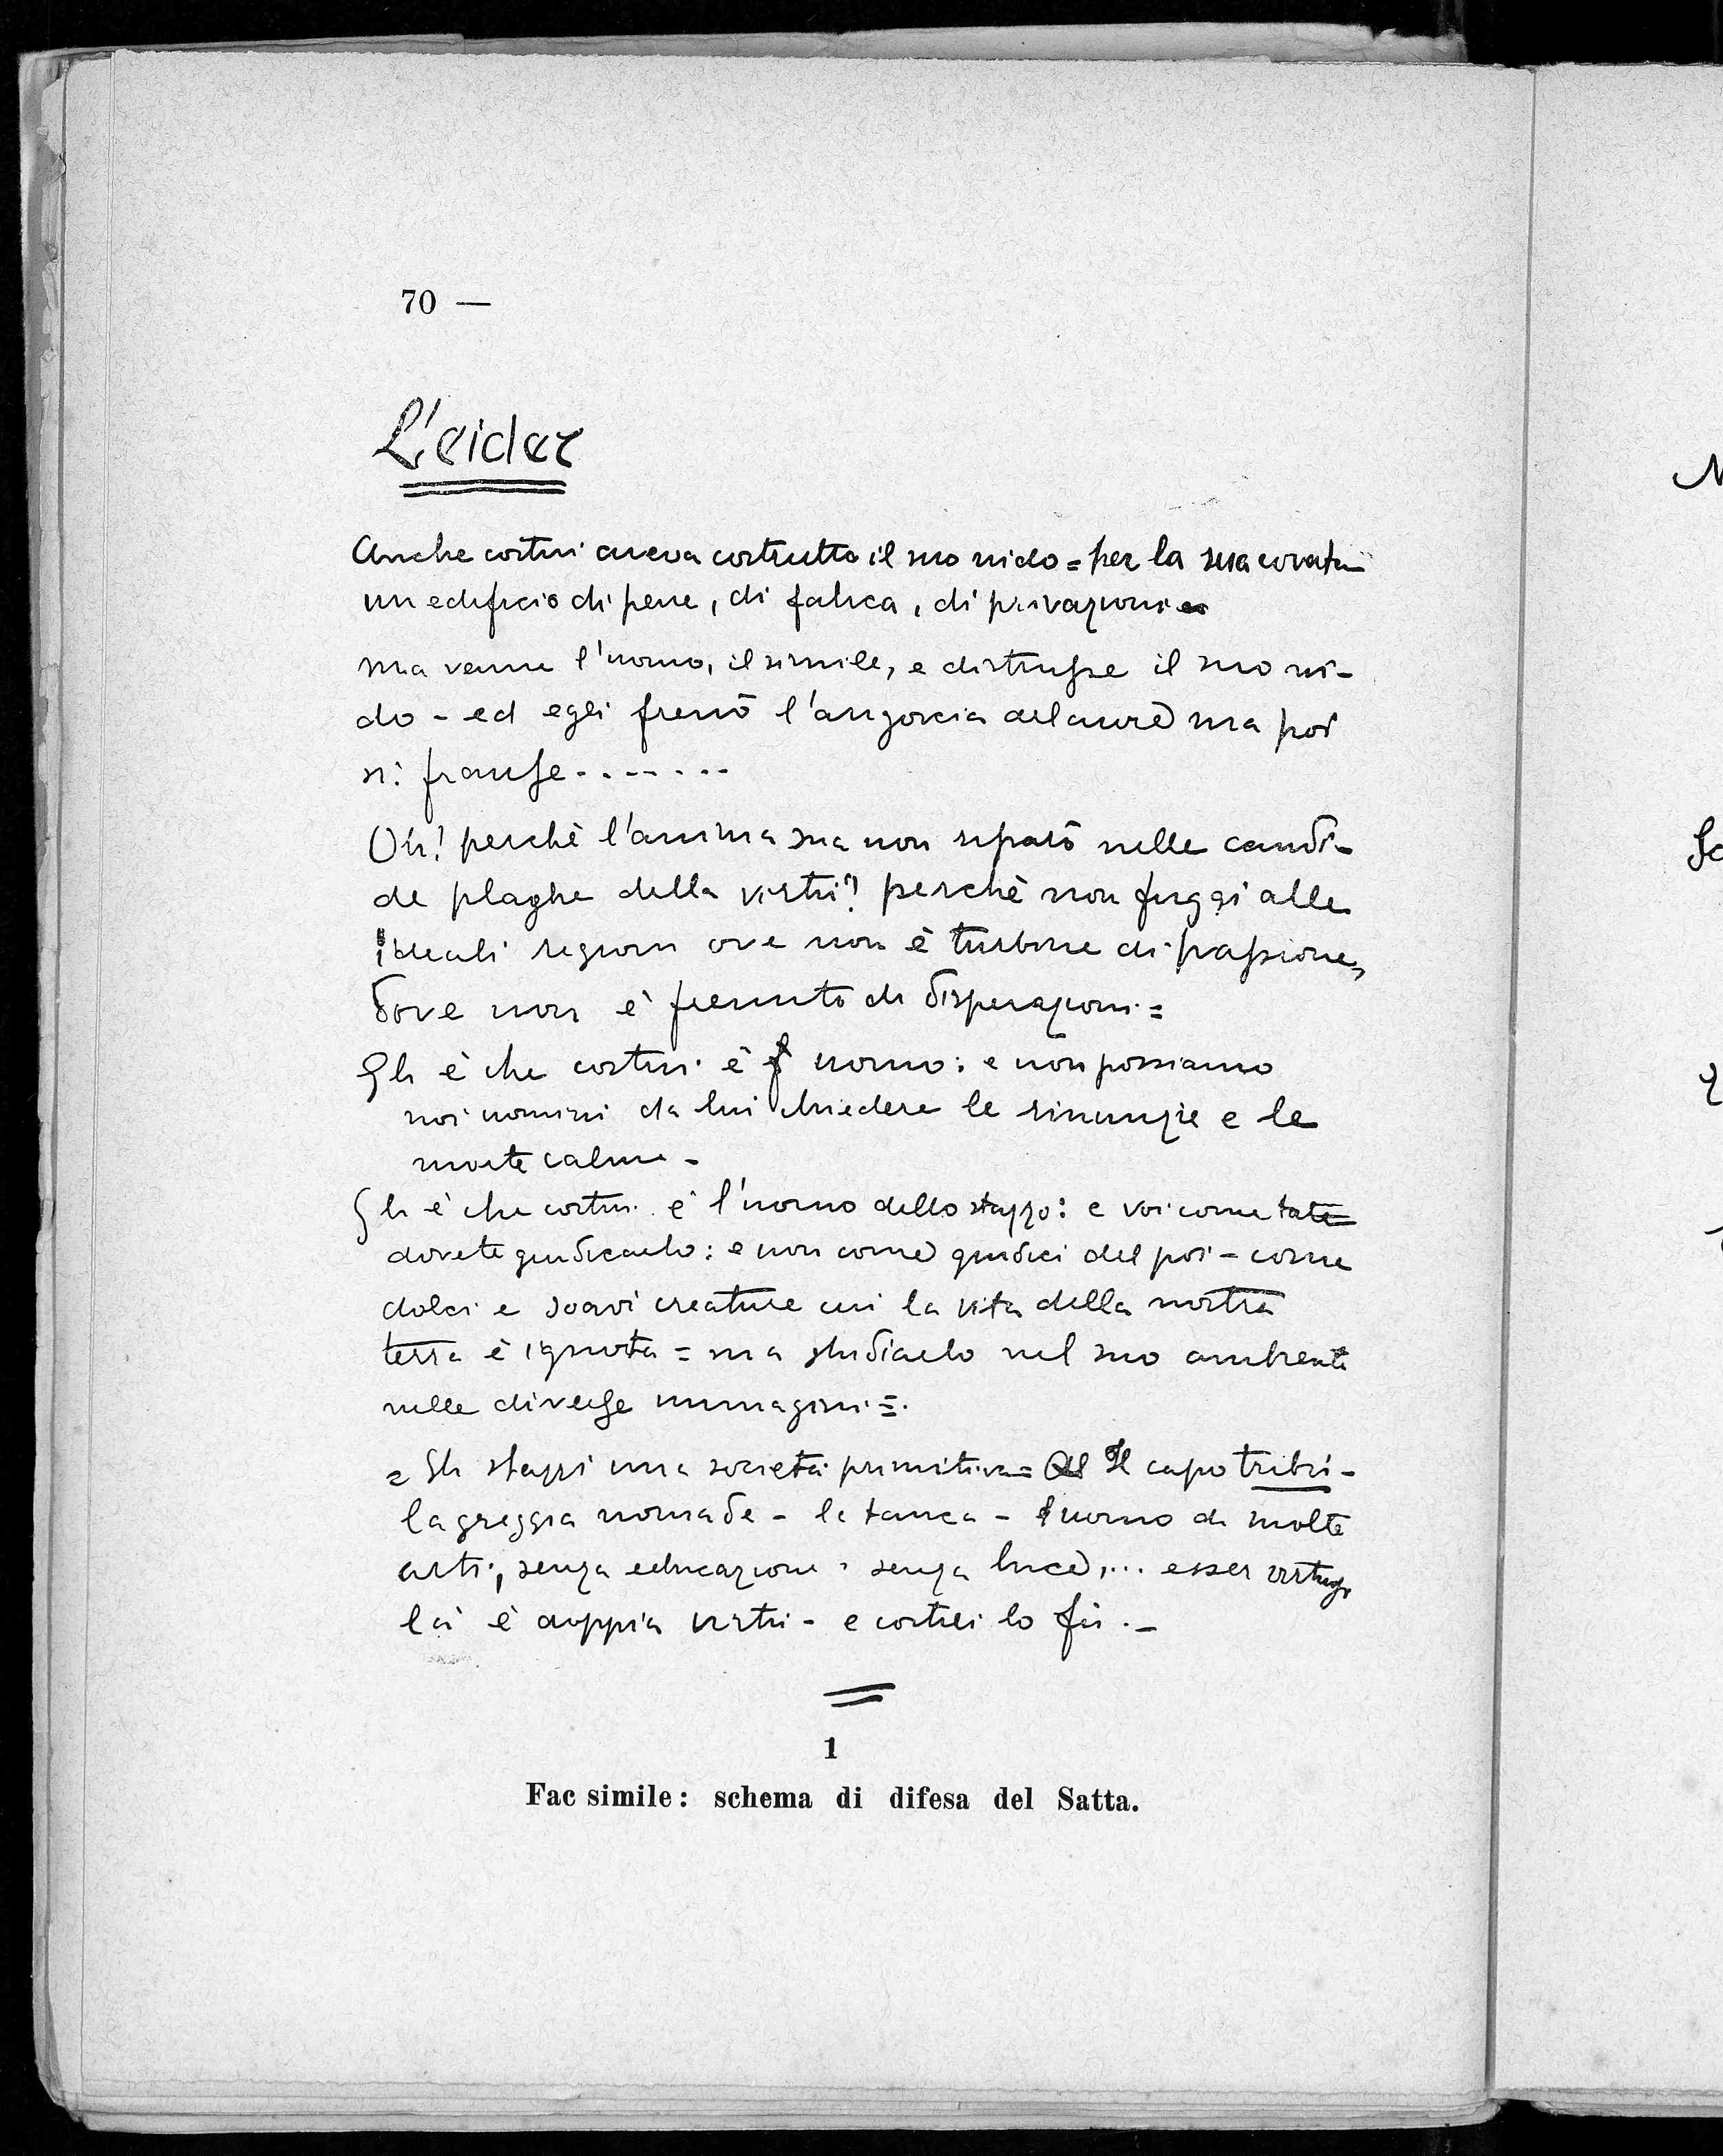 70 —
L'eider
Anche costui aveva costrutto il suo nido = per la sua covata
un edificio di pene, di fatica, di privazioni
ma venne l'uomo, il simile, e distrusse il suo ni-
do - ed egli frenò l'angoscia del cuore ma poi
si franse.......
Oh! perchè l'anima sua non riparò nelle candi-
de plaghe della virtù? perchè non fuggì alle
ideali regioni ove non è turbine di passione,
dove non è fremito di disperazioni =
Gli è che costui è uomo: e non possiamo
noi uomini da lui chiedere le rinunzie e le
morte calme -
Gli è che costui è l'uomo dello stazzo: e voi come tale
dovete giudicarlo: e non come giudici del poi - come
dolci e soavi creature cui la vita della nostra
terra è ignota = ma studiarlo nel suo ambiente
nelle diverse immagini =.
= Gli stazzi una società primitiva = Il capo tribù -
la greggia nomade - la tanca - l'uomo di molte
arti; senza educazione, senza luce,... esser virtuosi
là è doppia virtù - e costui lo fù. -
1
Fac simile: schema di difesa del Satta.